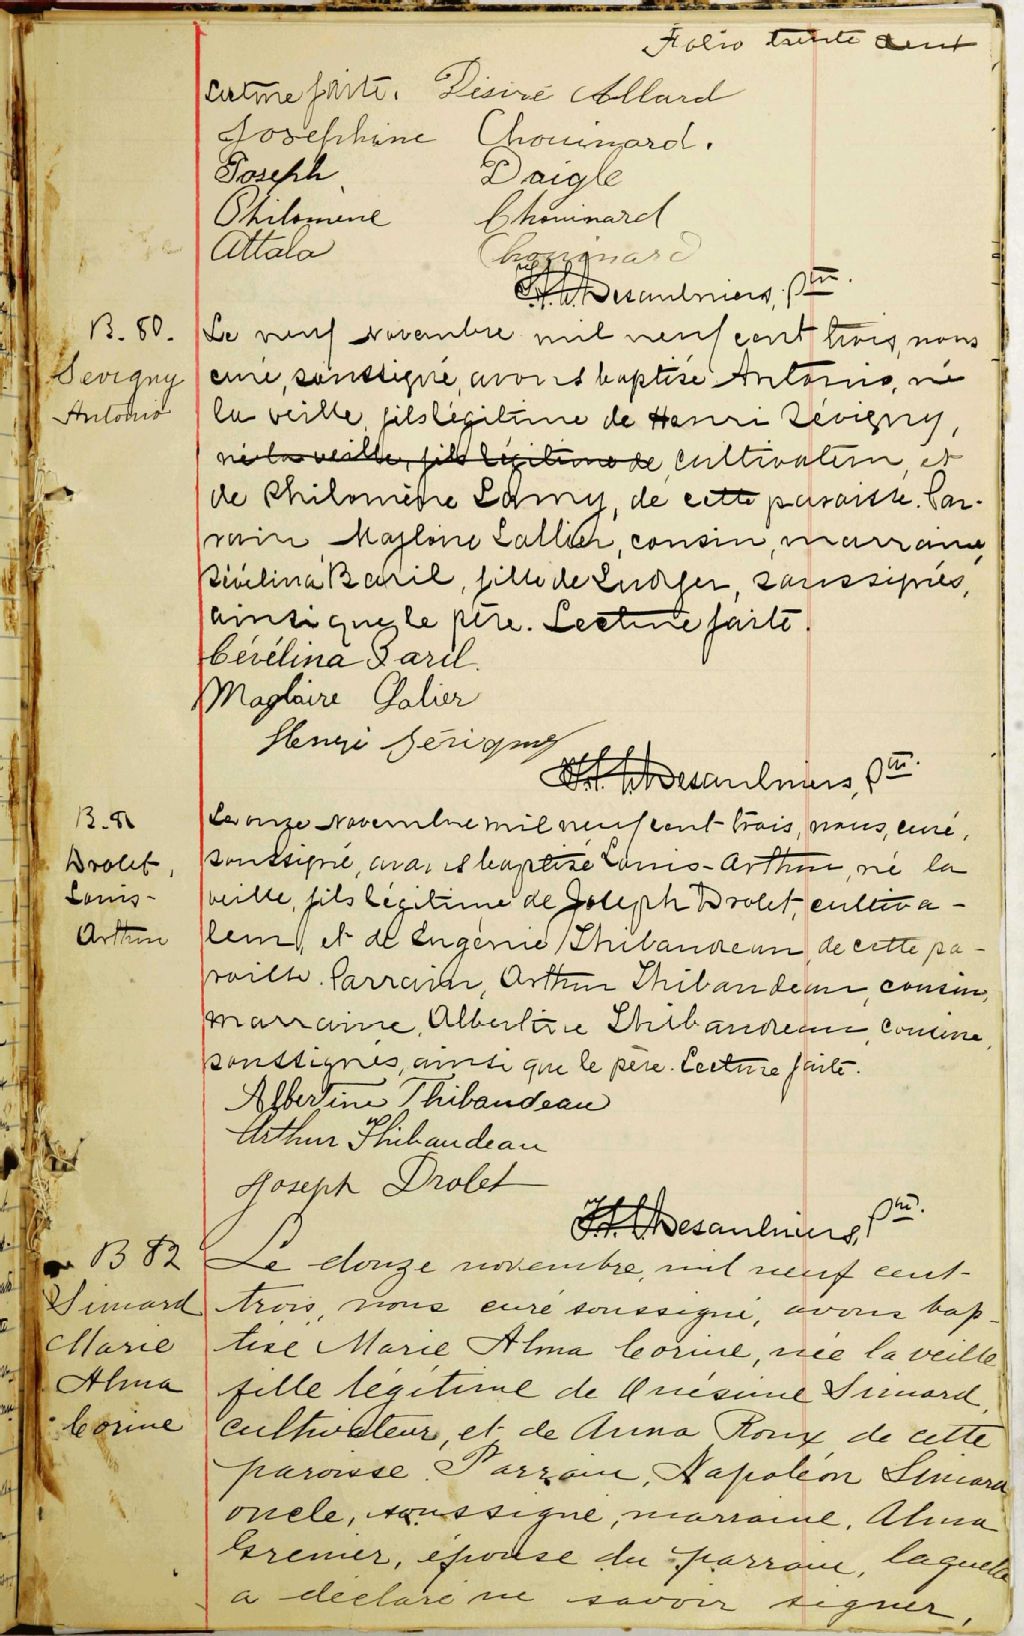 Folio trente deux
Lecture faite. Désiré Allard
Josephine Chouinard.
Joseph Daigle
Philomene Chouinard
Attala Chouinard
Desaulniers, Ptre.
B. 80. Le neuf novembre mil neuf cent trois, nous
Sevigny curé, soussigné, avons baptisé Antonio, né
Antonio la veille, fils légitime de Henri Sévigny,
né la veille, fils légitime de, cultivateur, et
de Philomène Lamy, de cette paroisse. Par-
rain, Magloire Lallier, cousin, marraine,
Sévélina Baril, fille de Ludger, soussignés,
ainsi que le père. Lecture faite.
Cévélina Baril.
Magloire Lalier
Henri Sévigny
Desaulniers, Ptre.
B. 81 Le onze novembre mil neuf cent trois, nous, curé,
Drolet, soussigné, avons baptisé Louis-Arthur, né la
Louis- veille, fils légitime de Joseph Drolet, cultiva-
Arthur teur, et de Eugénie Thibaudeau, de cette pa-
roisse. Parrain, Arthur Thibaudeau, cousin,
marraine, Albertine Thibaudeau, cousine,
soussignés, ainsi que le père. Lecture faite.
Albertine Thibaudeau
Arthur Thibaudeau
Joseph Drolet
Desaulniers, Ptre.
B 82 Le douze novembre, mil neuf cent
Simard trois, nous curé soussigné, avons bap-
Marie tisé Marie Alma Corine, née la veille
Alma fille légitime de Onésime Simard,
Corine cultivateur, et de Anna Roux, de cette
paroisse. Parrain, Napoléon Simard
oncle, soussigné, marraine, Alma
Grenier, épouse du parrain, laquelle
a déclaré ne savoir signer,